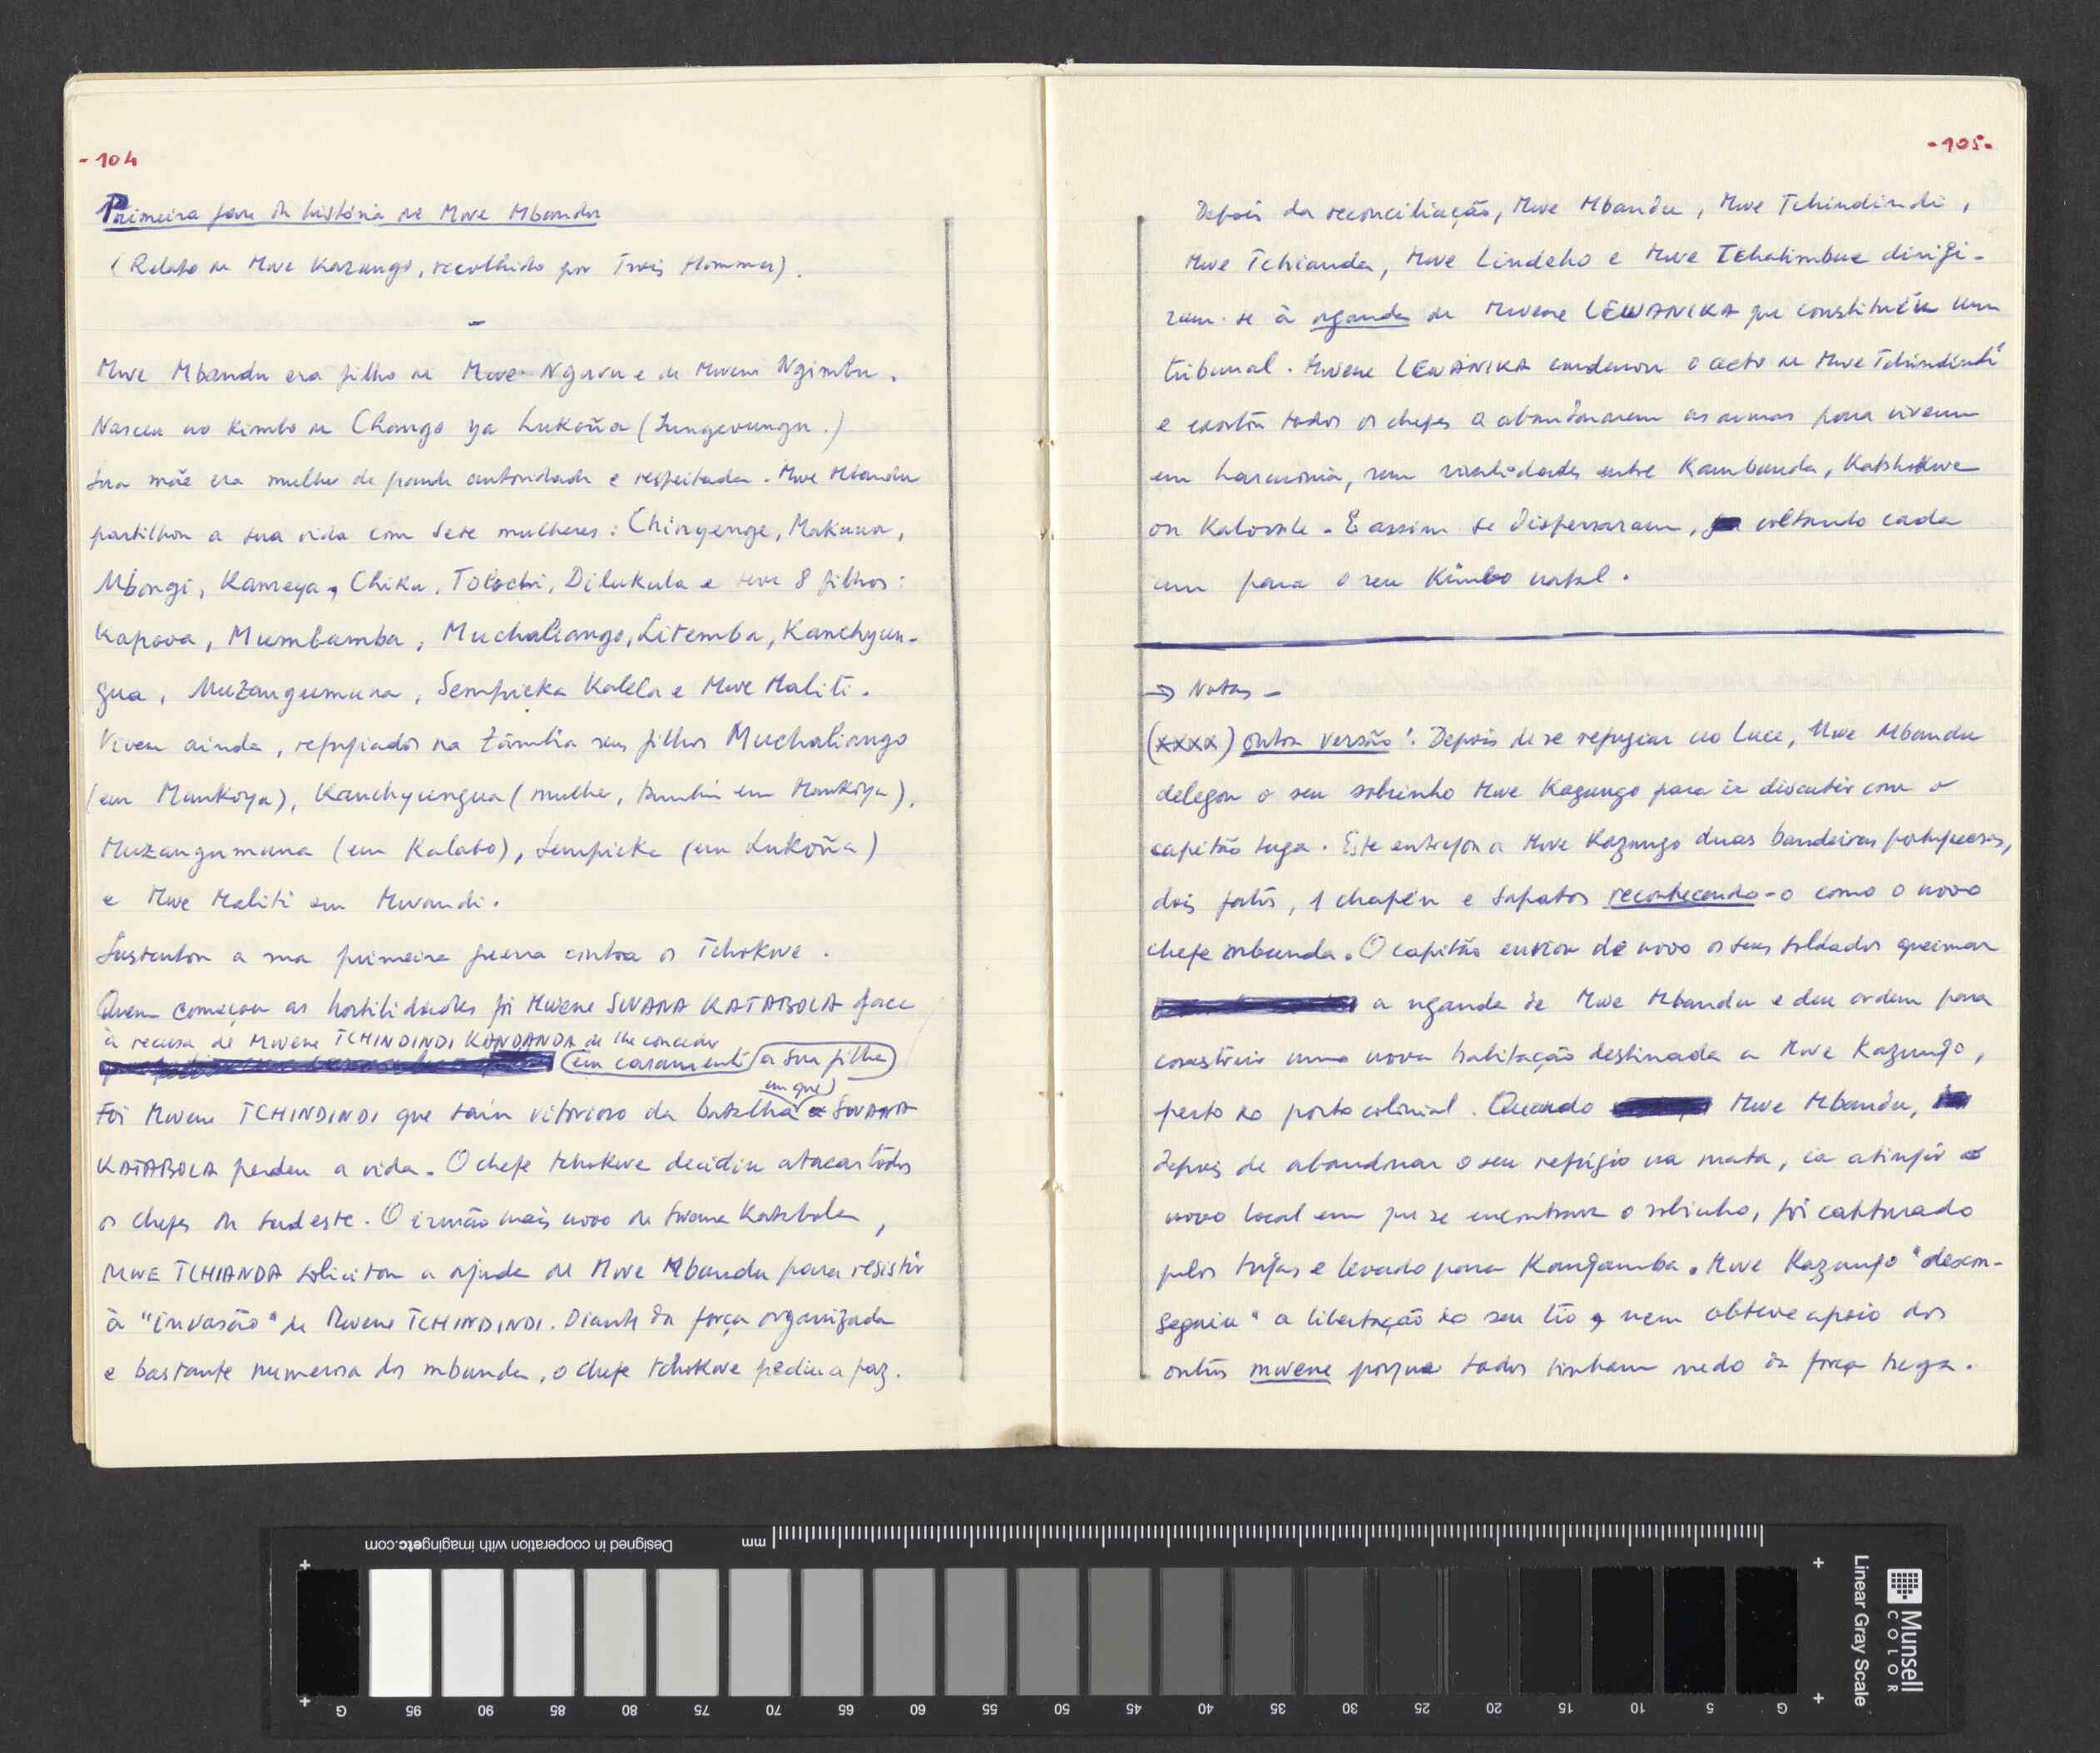 - 104
Primeira fase da história de Mwe Mbandu
(Relato de Mwe Kazungo, recolhido por Três Hommes).
-
Mwe Mbandu era filho de Mwe Nguvu e de Mwene Ngimbu.
Nasceu no Kimbo de Chango ya Lukoña (Lungevungu.)
Sua mãe era mulher de grande autoridade e respeitada. Mwe Mbandu
partilhou a sua vida com sete mulheres: Chinyenge, Makuwa,
Mbongi, Kameya, Chiku, Tolochi, Dilukula e teve 8 filhos:
Kapova, Mumbamba, Muchaliango, Litemba, Kanchyun-
gua, Muzangumuna, Sempieka Kalela e Mwe Maliti.
Vivem ainda, refugiados na Zâmbia seus filhos Muchaliango
(em Mankoya), Kanchyungua (mulher, também em Mankoya),
Muzangumuna (em Kalabo), Sempieka (em Lukoña)
e Mwe Maliti em Mwandi.
Sustentou a sua primeira guerra contra os Tchokwe.
Quem começou as hostilidades foi Mwene SWANA KATABOLA face
à recusa de Mwene TCHINDINDI KANDANDA de lhe conceder
em casamento a sua filha
em que
Foi Mwene TCHINDINDI que saíu vitorioso da batalha SWANA
KATABOLA perdeu a vida. O chefe tchokwe decidiu atacar todos
os chefes do sudeste. O irmão mais novo de Swana Katabola,
MWE TCHIANDA solicitou a ajuda de Mwe Mbandu para resistir
à "invasão" de Mwene TCHINDINDI. Diante da força organizada
e bastante numerosa dos mbunda, o chefe tchokwe pediu a paz.
-105-
Depois da reconciliação, Mwe Mbandu, Mwe Tchindindi,
Mwe Tchianda, Mwe Lindeho e Mwe Tchalimbue dirigi-
ram-se à nganda de Mwene LEWANIKA que constituíu um
tribunal. Mwene LEWANIKA condenou o acto de Mwe Tchindindi
e exortou todos os chefes a abandonarem as armas para viverem
em harmonia, sem rivalidades entre Kambunda, Katchokwe
ou Kalovale. E assim se dispersaram, voltando cada
um para o seu Kimbo natal.
→ Notas -
(xxxx) outra versão: Depois de se refugiar no Luce, Mwe Mbandu
delegou o seu sobrinho Mwe Kazungo para ir discutir com o
capitão tuga. Este entregou a Mwe Kazungo duas bandeiras portuguesas,
dois fatos, 1 chapéu e sapatos reconhecendo-o como o novo
chefe mbunda. O capitão enviou de novo os seus soldados queimar
a nganda de Mwe Mbandu e deu ordem para
construir uma nova habitação destinada a Mwe Kazungo,
perto do posto colonial. Quando Mwe Mbandu,
depois de abandonar o seu refúgio na mata, ia atingir o
novo local em que se encontrava o sobrinho, foi capturado
pelos tugas e levado para Kangamba. Mwe Kazungo "desen-
seguiu" a libertação do seu tio, nem obteve apoio dos
outros mwene porque todos tinham medo da força tuga.
Designed in cooperation with imagingetc.com
mm
G 95 90 85 80 75 70 65 60 55 50 45 40 35 30 25 20 15 10 5 G
Munsell
COLOR
Linear Gray Scale